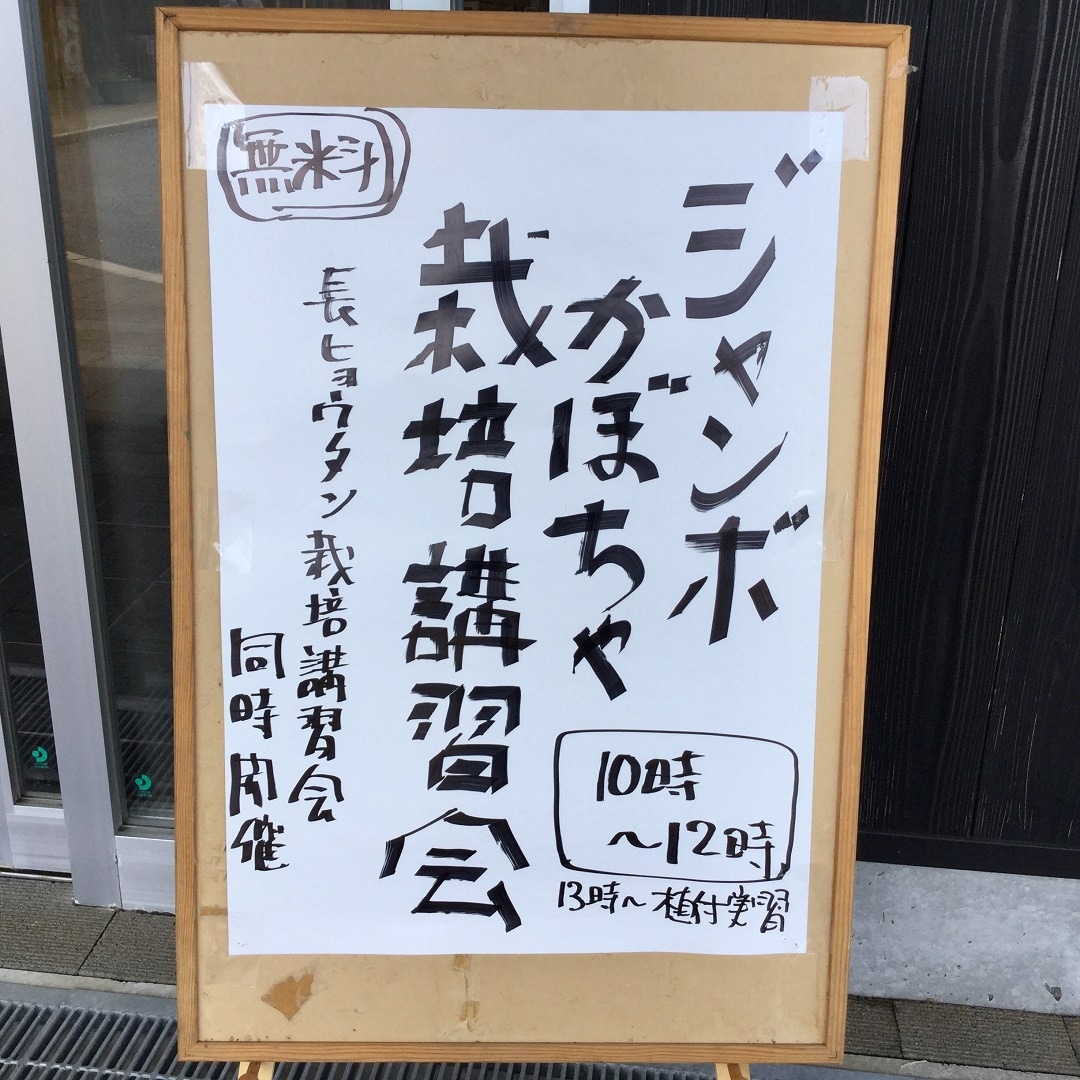 ジャンボ
かぼちゃ
栽培講習会
無料
長ヒョウタン栽培講習会
同時開催
10時
〜12時
13時〜植付実習